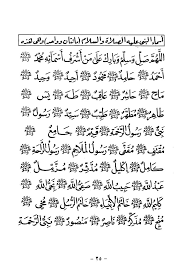 أسماء النبي عليه الصلاة والسلام مائتان وواحد وهي هذه
اللهم صل وسلم وبارك على من أشرف أسمائه محمد ﷺ
أحمد ﷺ حامد ﷺ محمود ﷺ أحيد ﷺ وحيد ﷺ
ماح ﷺ حاشر ﷺ عاقب ﷺ طه ﷺ يس ﷺ
طاهر ﷺ مطهر ﷺ طيب ﷺ سيد ﷺ رسول ﷺ
نبي ﷺ رسول الرحمة ﷺ قيم ﷺ جامع ﷺ
مقتف ﷺ مقفى ﷺ رسول الملاحم ﷺ رسول الراحة ﷺ
كامل ﷺ إكليل ﷺ مدثر ﷺ مزمل ﷺ
عبد الله ﷺ حبيب الله ﷺ صفي الله ﷺ نجي الله ﷺ
كليم الله ﷺ خاتم الأنبياء ﷺ خاتم الرسل ﷺ محيي ﷺ
منج ﷺ مذكر ﷺ ناصر ﷺ منصور ﷺ نبي الرحمة
- ٢٥ -